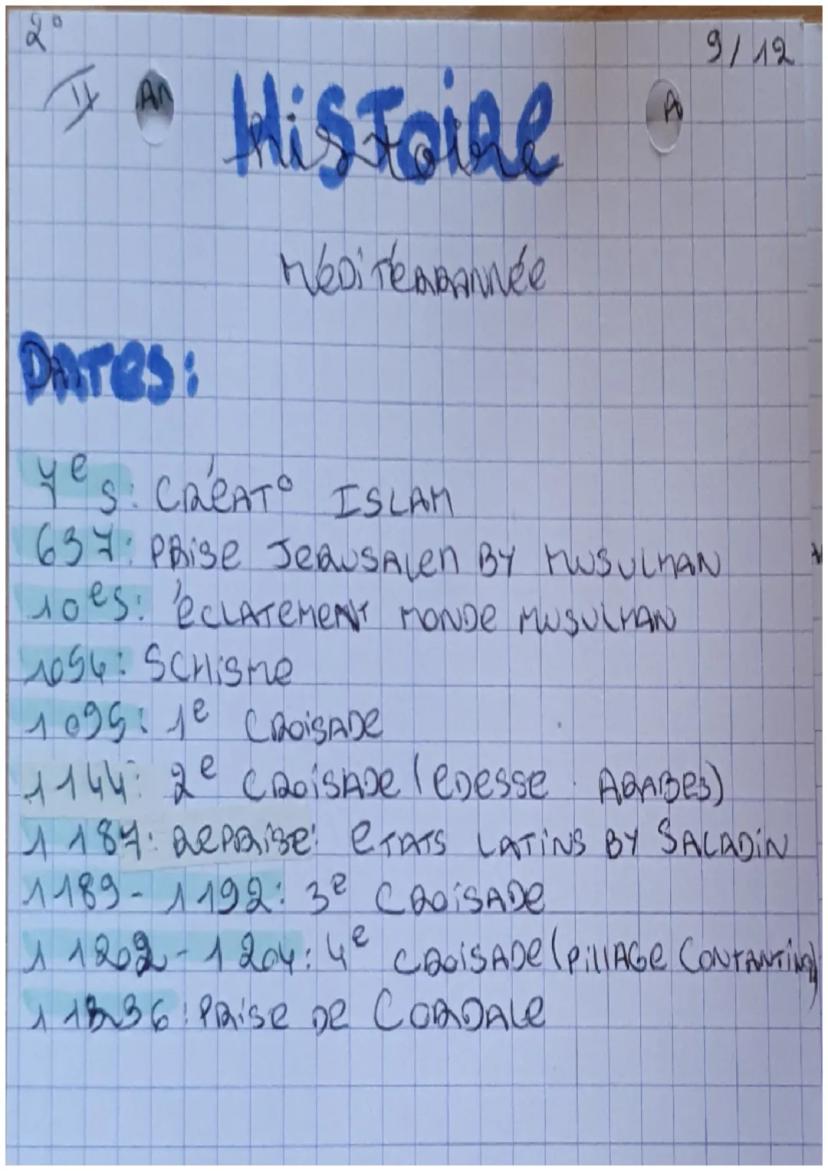 2° 9/12
Histoire
MéDiTéRRANNée
DATES:
7e s: CRéAT° ISLAM
637: PRise JeRusAlem BY MusulMAN
10es: éCLATEMENT MONDe MUSULMAN
1054: SCHisMe
1095: 1e CROISADe
1144: 2e CROISADe (eDesse ARABes)
1187: RePRise: eTATS LATiNS BY SALADiN
1189-1192: 3e CROiSADe
1202-1204: 4e CROiSADe (PillAGe
PRise De CORDALe